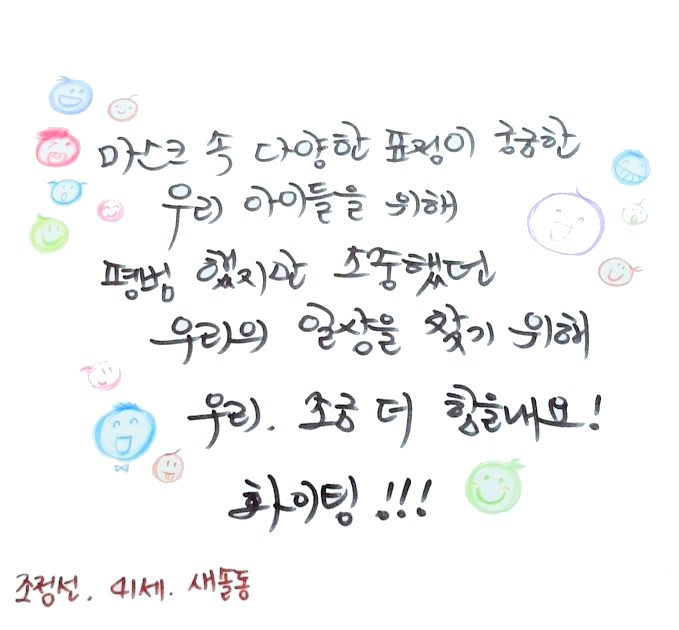 마스크 속 다양한 표정이 궁금한
우리 아이들을 위해
평범 했지만 소중했던
우리의 일상을 찾기 위해
우리. 조금 더 힘을내요!
화이팅!!!
조정선. 41세. 새솔동